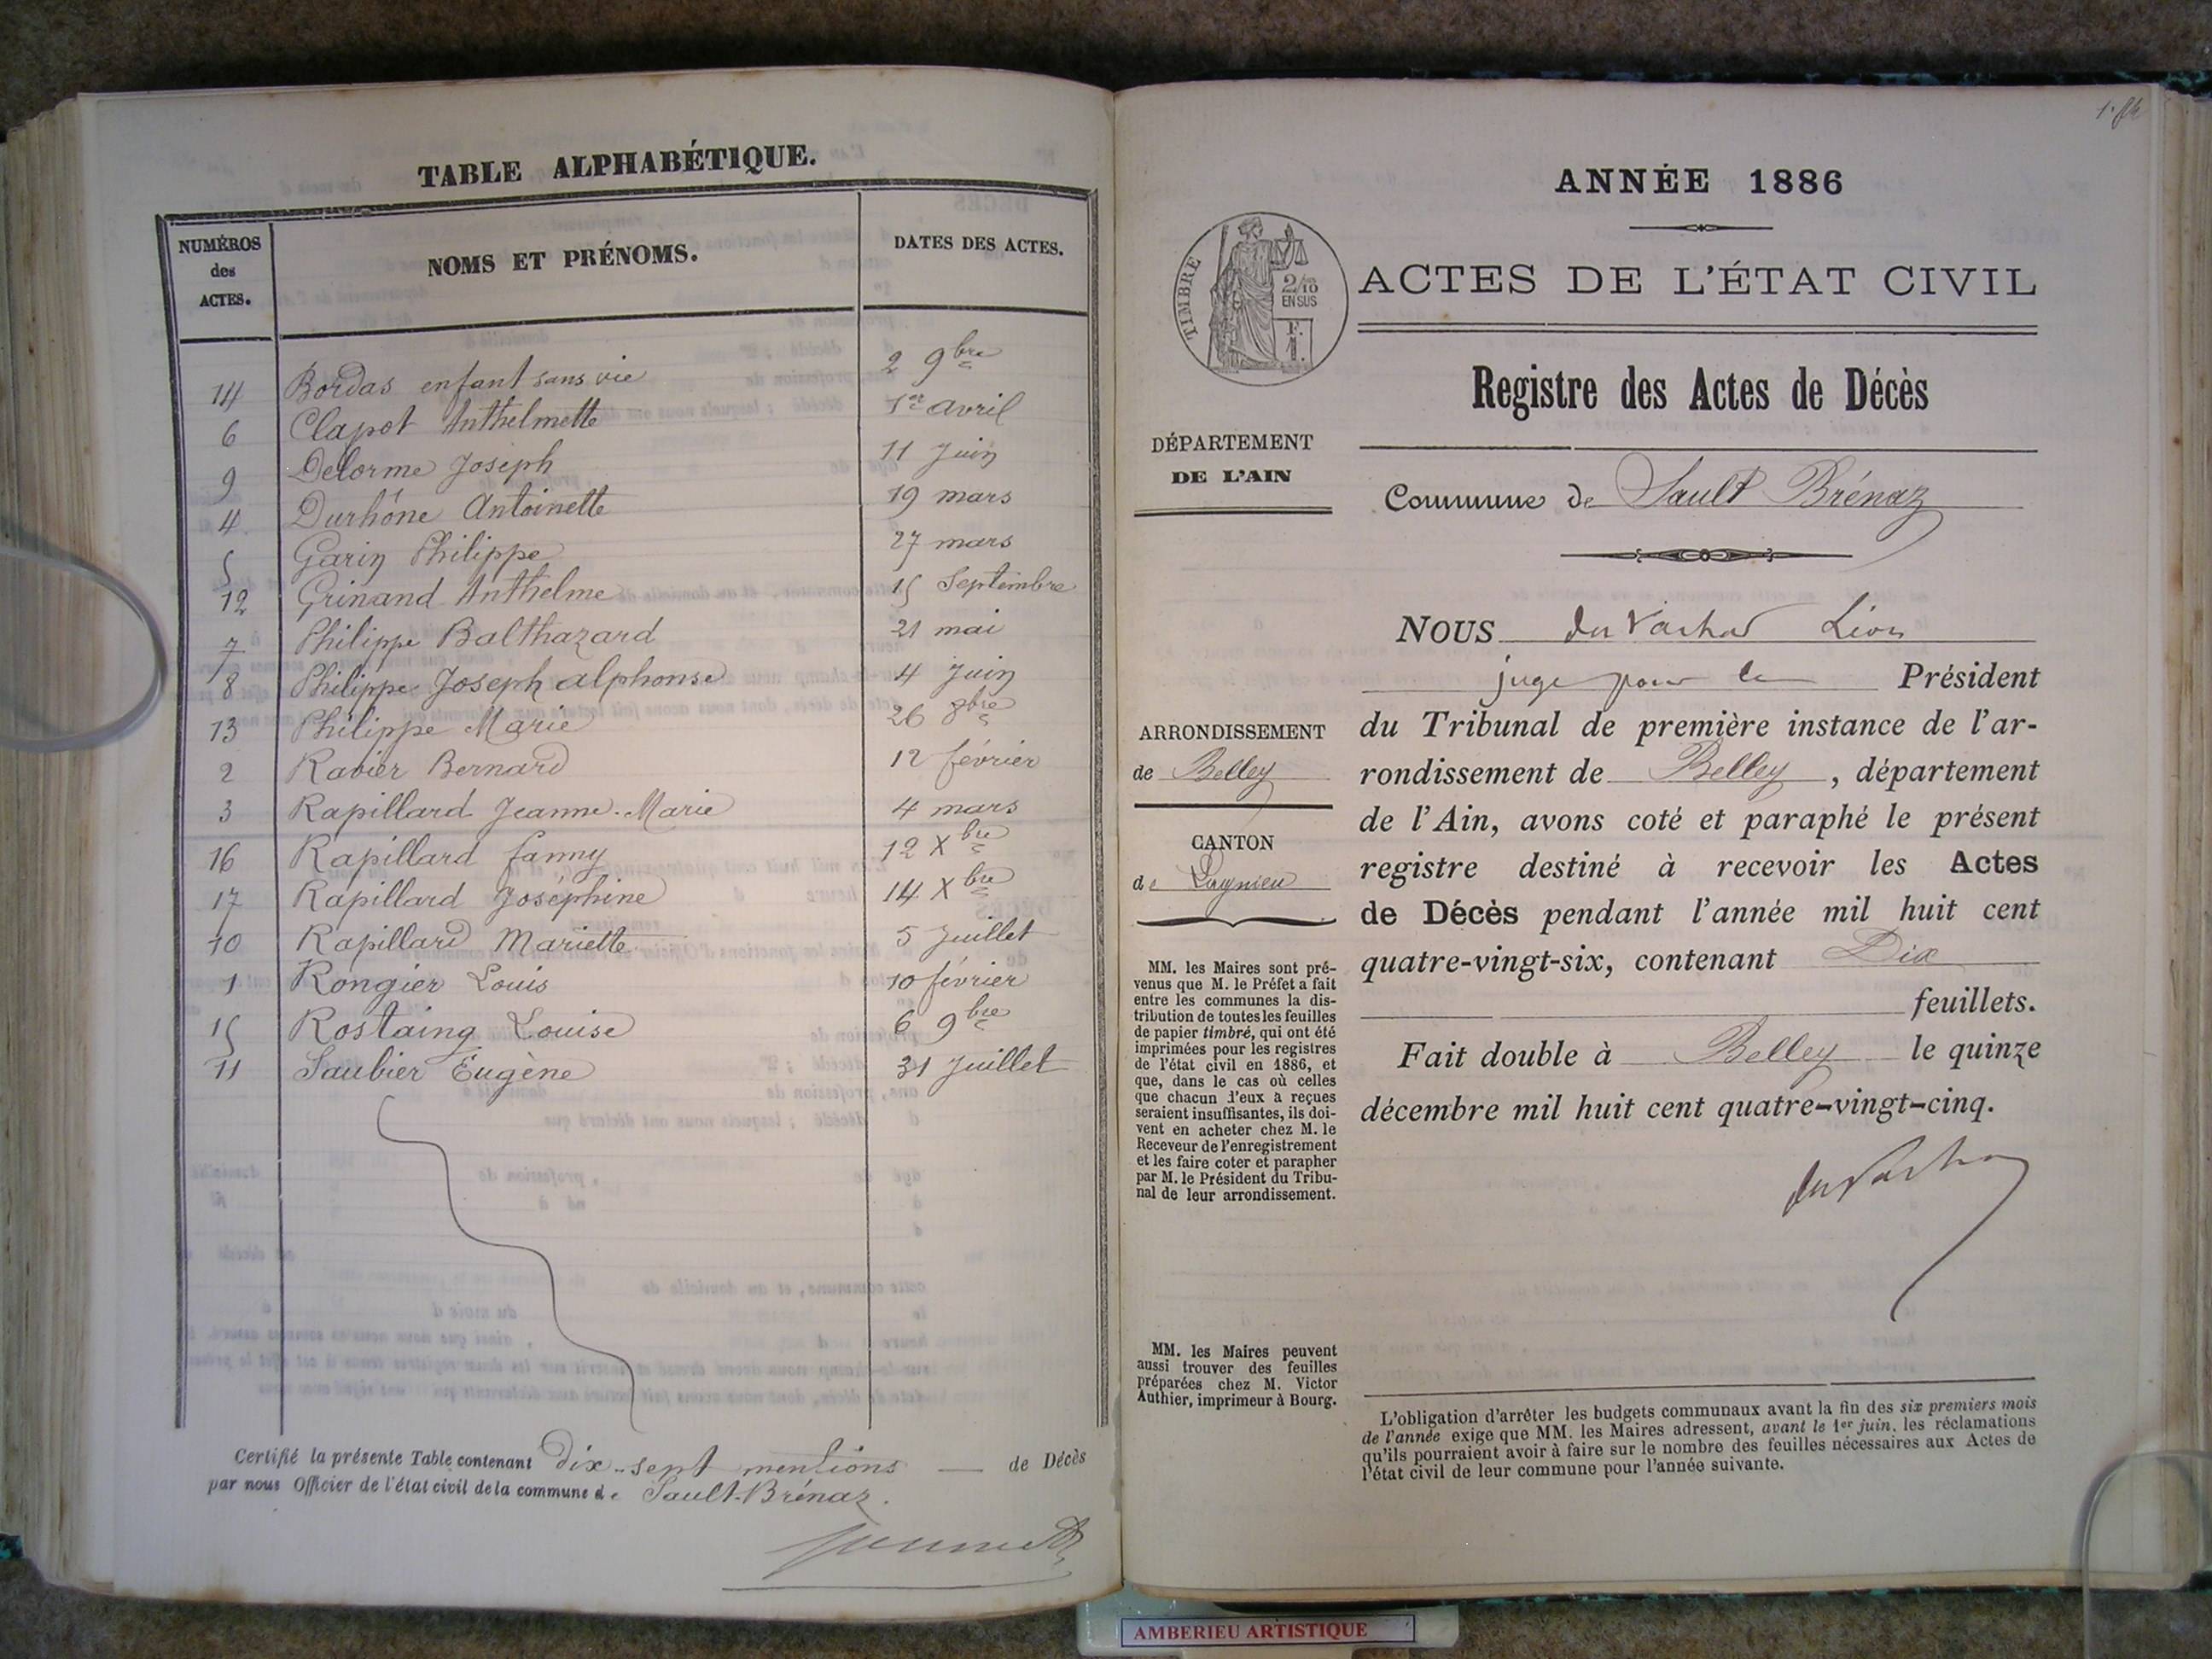 TABLE ALPHABÉTIQUE.
NUMÉROS
des
ACTES.
NOMS ET PRÉNOMS.
DATES DES ACTES.
14 Bordas enfant sans vie 2 9bre
6 Clapot Anthelmette 1er avril
9 Delorme Joseph 11 Juin
4 Durhône Antoinette 19 mars
5 Garin Philippe 27 mars
12 Grinand Anthelme 15 Septembre
7 Philippe Balthazard 21 mai
8 Philippe Joseph alphonse 4 Juin
13 Philippe Marie 26 8bre
2 Ravier Bernard 12 février
3 Rapillard Jeanne-Marie 4 mars
16 Rapillard fanny 12 Xbre
17 Rapillard Joséphine 14 Xbre
10 Rapillard Mariette 5 Juillet
1 Rongier Louis 10 février
15 Rostaing Louise 6 9bre
11 Saubier Eugène 31 Juillet
Certifié la présente Table contenant dix-sept mentions de Décès
par nous Officier de l'état civil de la commune de Sault-Brénaz.
ANNÉE 1886
TIMBRE
2/10
EN SUS
F.
1.
ACTES DE L'ÉTAT CIVIL
Registre des Actes de Décès
DÉPARTEMENT
DE L'AIN
Commune de Sault Brénaz
NOUS Léon
juge pour le Président
du Tribunal de première instance de l'ar-
rondissement de Belley, département
de l'Ain, avons coté et paraphé le présent
registre destiné à recevoir les Actes
de Décès pendant l'année mil huit cent
quatre-vingt-six, contenant Dix
feuillets.
Fait double à Belley le quinze
décembre mil huit cent quatre-vingt-cinq.
ARRONDISSEMENT
de Belley
CANTON
de Lagnieu
MM. les Maires sont pré-
venus que M. le Préfet a fait
entre les communes la dis-
tribution de toutes les feuilles
de papier timbré, qui ont été
imprimées pour les registres
de l'état civil en 1886, et
que, dans le cas où celles
que chacun d'eux a reçues
seraient insuffisantes, ils doi-
vent en acheter chez M. le
Receveur de l'enregistrement
et les faire coter et parapher
par M. le Président du Tribu-
nal de leur arrondissement.
MM. les Maires peuvent
aussi trouver des feuilles
préparées chez M. Victor
Authier, imprimeur à Bourg.
L'obligation d'arrêter les budgets communaux avant la fin des six premiers mois
de l'année exige que MM. les Maires adressent, avant le 1er juin, les réclamations
qu'ils pourraient avoir à faire sur le nombre des feuilles nécessaires aux Actes de
l'état civil de leur commune pour l'année suivante.
AMBERIEU ARTISTIQUE